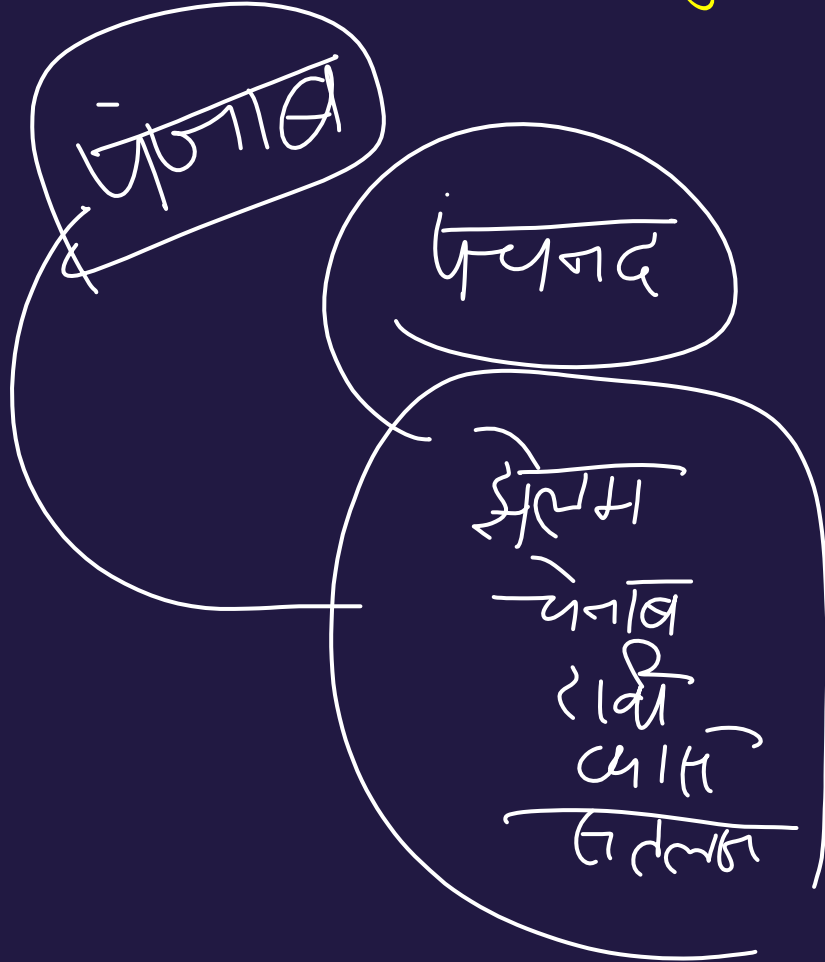 पंजाब
पंचनद
झेलम
चेनाब
रावी
व्यास
सतलज